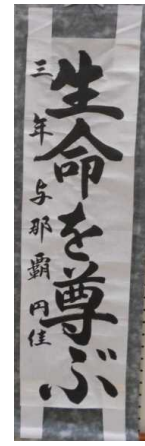 生命を尊ぶ
三年 与那覇 円佳